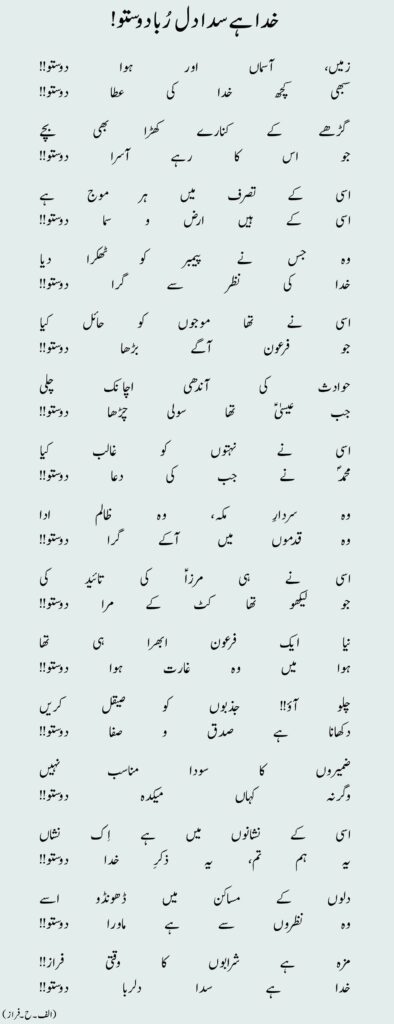 خدا ہے سدا دل رُبا دوستو!
زمیں، آسماں اور ہوا دوستو!!
سبھی کچھ خدا کی عطا دوستو!!
گڑھے کے کنارے کھڑا بھی بچے
جو اس کا رہے آسرا دوستو!!
اسی کے تصرف میں ہر موج ہے
اسی کے ہیں ارض و سما دوستو!!
وہ جس نے پیمبر کو ٹھکرا دیا
خدا کی نظر سے گرا دوستو!!
اسی نے تھا موجوں کو حائل کیا
جو فرعون آگے بڑھا دوستو!!
حوادث کی آندھی اچانک چلی
جب عیسیٰؑ تھا سولی چڑھا دوستو!!
اسی نے نہتوں کو غالب کیا
محمدؐ نے جب کی دعا دوستو!!
وہ سردارِ مکہ، وہ ظالم ادا
وہ قدموں میں آکے گرا دوستو!!
اسی نے ہی مرزاؑ کی تائید کی
جو لیکھو تھا کٹ کے مرا دوستو!!
نیا ایک فرعون ابھرا ہی تھا
ہوا میں وہ غارت ہوا دوستو!!
چلو آؤ!! جذبوں کو صیقل کریں
دکھانا ہے صدق و صفا دوستو!!
ضمیروں کا سودا مناسب نہیں
وگرنہ کہاں میکدہ دوستو!!
اسی کے نشانوں میں ہے اِک نشاں
یہ ہم تم، یہ ذکرِ خدا دوستو!!
دلوں کے مساکن میں ڈھونڈو اسے
وہ نظروں سے ہے ماورا دوستو!!
مزہ ہے شرابوں کا وقتی فراز!!
خدا ہے سدا دلربا دوستو!!
(الف۔ح۔فراز)